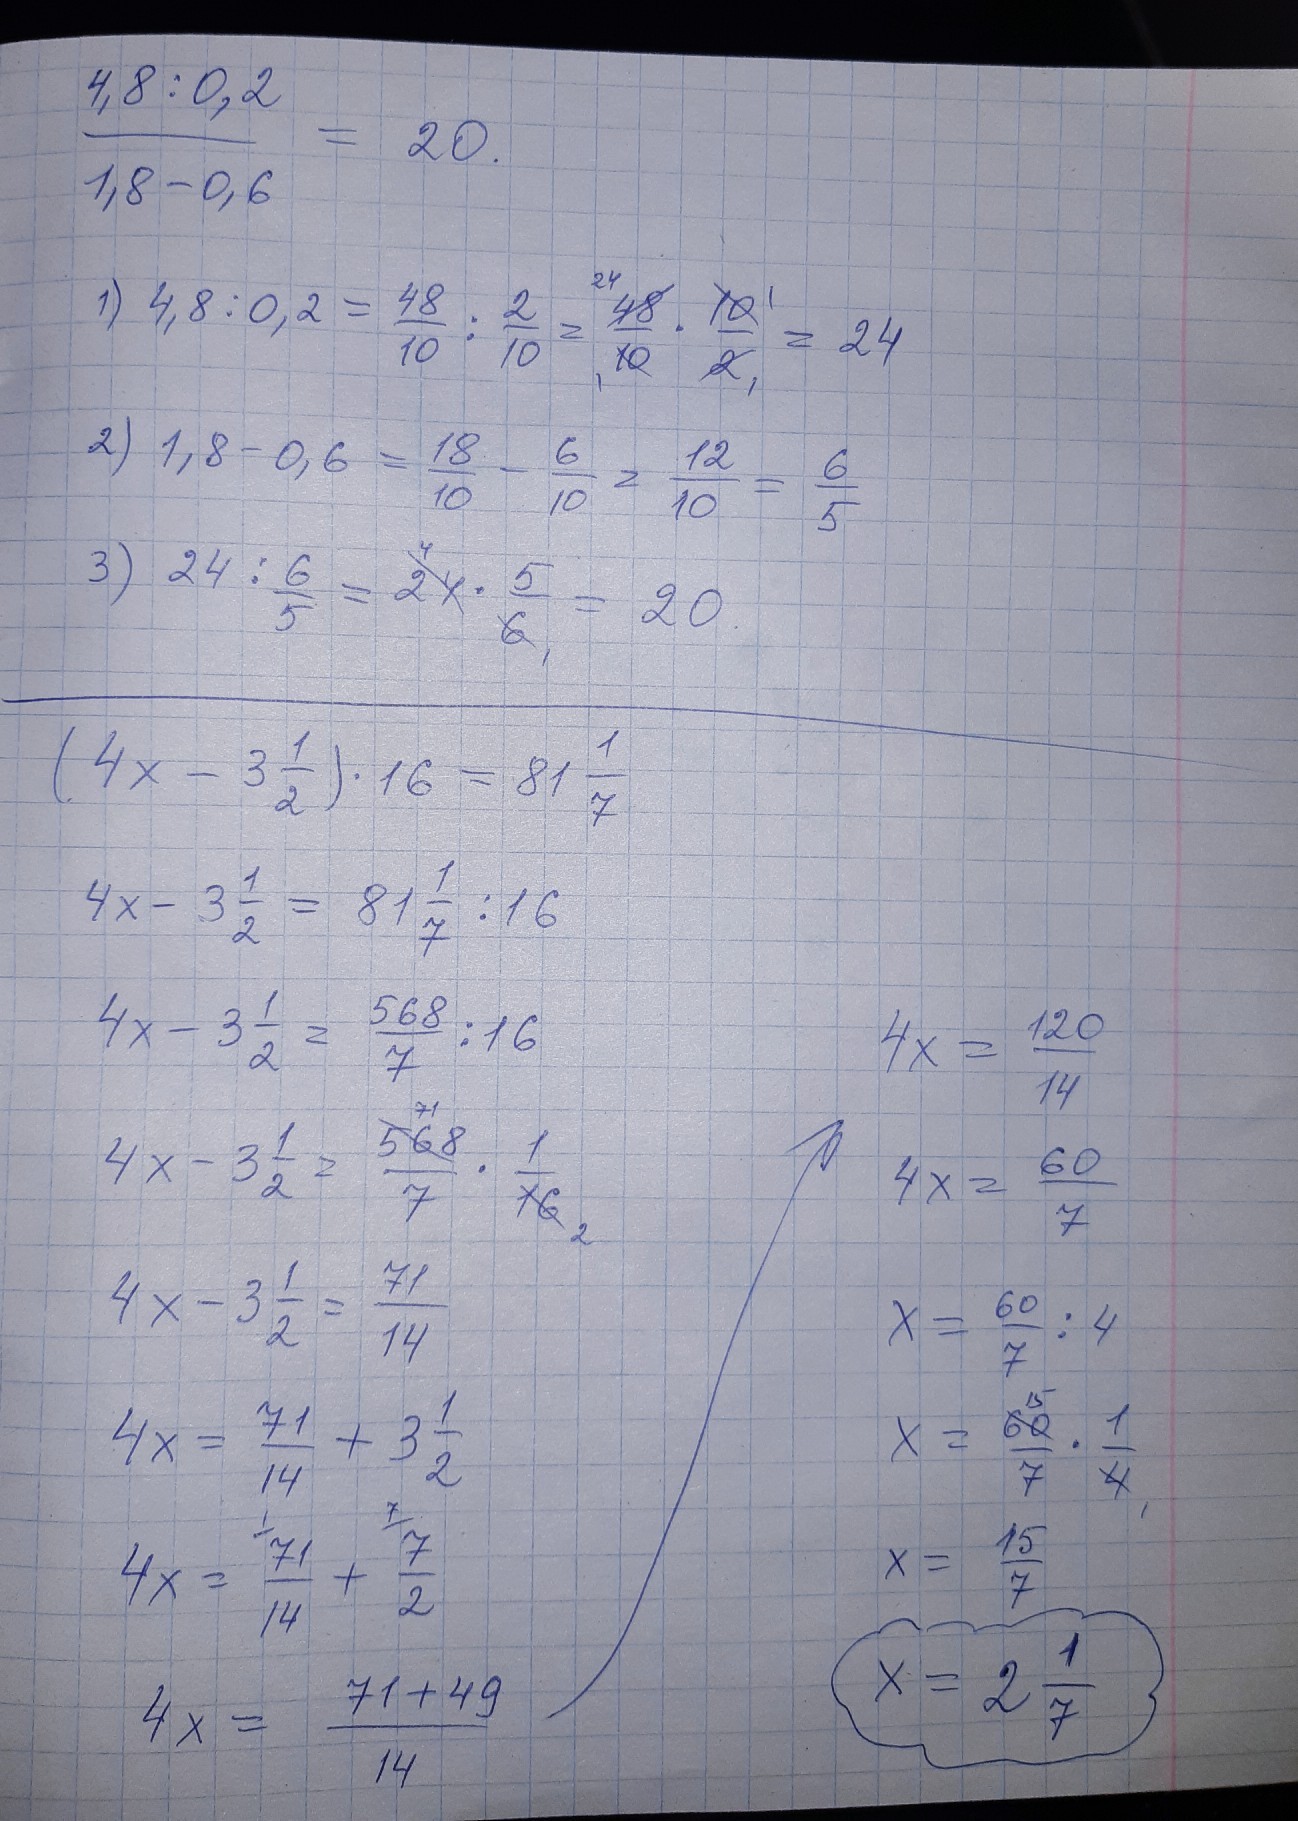 4,8 : 0,2 / 1,8 - 0,6 = 20.
1) 4,8 : 0,2 = 48/10 : 2/10 = 24 48/10 1 · 10 1/2 1 = 24
2) 1,8 - 0,6 = 18/10 - 6/10 = 12/10 = 6/5
3) 24 : 6/5 = 4 24 · 5/6 1 = 20.
(4x - 3 1/2) · 16 = 81 1/7
4x - 3 1/2 = 81 1/7 : 16
4x - 3 1/2 = 568/7 : 16
4x - 3 1/2 = 71 568/7 · 1/16 2
4x - 3 1/2 = 71/14
4x = 71/14 + 3 1/2
4x = 1/ 71/14 + 7/ 7/2
4x = 71 + 49 / 14
4x = 120/14
4x = 60/7
x = 60/7 : 4
x = 15 60/7 · 1/4 1
x = 15/7
x = 2 1/7